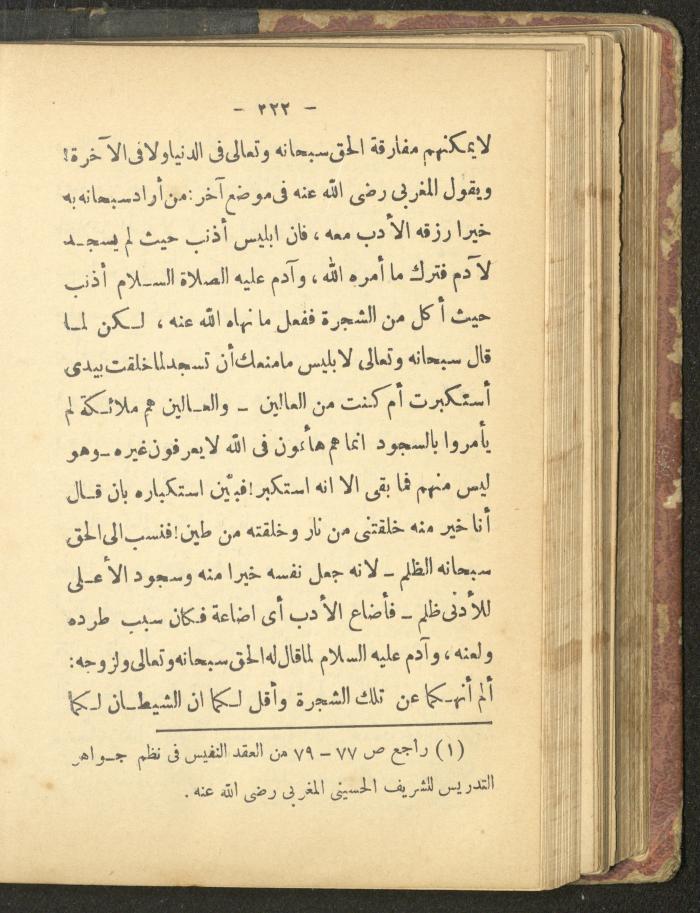 — ٣٢٢ —
لا يمكنهم مفارقة الحق سبحانه وتعالى فى الدنيا ولا فى الآخرة!
ويقول المغربى رضى الله عنه فى موضع آخر: من أراد سبحانه به
خيرا رزقه الأدب معه ، فان ابليس أذنب حيث لم يسجد
لآدم فترك ما أمره الله ، وآدم عليه الصلاة السلام أذنب
حيث أكل من الشجرة ففعل ما نهاه الله عنه ، لكن لما
قال سبحانه وتعالى لابليس مامنعك أن تسجد لما خلقت بيدى
أستكبرت أم كنت من العالين – والعالين هم ملائكة لم
يأمروا بالسجود انما هم هائمون فى الله لا يعرفون غيره – وهو
ليس منهم فما بقى الا انه استكبر! فبيّن استكباره بان قال
أنا خير منه خلقتنى من نار وخلقته من طين! فنسب الى الحق
سبحانه الظلم – لانه جعل نفسه خيرا منه وسجود الأعلى
للأدنى ظلم – فأضاع الأدب أى اضاعة فكان سبب طرده
ولعنه ، وآدم عليه السلام لما قال له الحق سبحانه وتعالى ولزوجه:
ألم أنهكما عن تلك الشجرة وأقل لكما ان الشيطان لكما
(١) راجع ص ٧٧ – ٧٩ من العقد النفيس فى نظم جواهر
التدريس للشريف الحسينى المغربى رضى الله عنه .